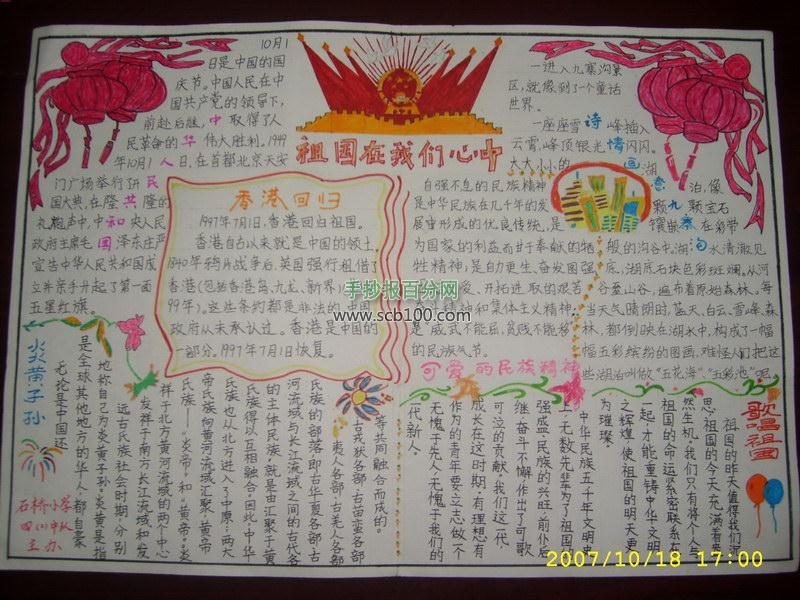 祖国在我们心中
10月1
日是中国的国
庆节。中国人民在中
国共产党的领导下,
前赴后继,中取得了人
民革命的华伟大胜利。1949
年10月1人日,在首都北京天安
门广场举行民
国大典,在隆共隆的
礼炮声中,中和央人民
政府主席毛国泽东庄严
宣告中华人民共和国成
立并亲手升起了第一面
五星红旗。
香港回归
1997年7月1日,香港回归祖国。
香港自古以来就是中国的领土,
1840年鸦片战争后,英国强行租借了
香港(包括香港岛、九龙、新界)
99年)。这些条约都是非法的,中国
政府从未承认过。香港是中国的
一部分。1997年7月1日恢复。
自强不息的民族精神
是中华民族在几千年的发
展中形成的优良传统,是
为国家的利益而甘于奉献的牺
牲精神;是自助更生、奋发图强
爱、开拓进取的艰苦
精神和集体主义精神;
是"威武不能屈,贫贱不能移"
的民族气节。
可爱的民族精神
一进入九寨沟景
区,就像到了一个童话
世界。
一座座雪诗峰插入
云霄,峰顶银光情闪闪。
大大小小的画湖
意泊,像
颗九颗宝石
镶嵌寨在彩带
般的沟谷中。湖沟水清澈见
底,湖底石块色彩斑斓。从河
谷至山谷,遍布着原始森林。每
当天气晴朗时,蓝天、白云、雪峰、森
林,都倒映在湖水中,构成了一幅
幅五彩缤纷的图画,难怪人们把这
些湖泊叫做"五花海"、"五彩池"呢。
炎黄子孙
无论是中国还
是全球其他地方的华人,都自豪
地称自己为炎黄子孙。炎黄是指
远古氏族社会时期,分别
发祥于南方长江流域和发
祥于北方黄河流域的两个中心
氏族——"炎帝"和"黄帝"。炎
帝氏族向黄河流域汇聚,黄帝
氏族也从北方进入了中原;两大
氏族得以互相融合。因此,中华
的主体民族,就是由汇聚于黄
河流域与长江流域之间的古代各
民族的部落即古华夏各部、古
夷人各部、古羌人各部、
古戎狄各部、古苗蛮各部
等共同融合而成的。
歌唱祖国
祖国的昨天值得我们沉
思,祖国的今天充满着盎
然生机,我们只有将个人与
祖国的命运紧密联系在
一起,才能重铸中华文明
之辉煌,使祖国的明天更
为璀璨。
中华民族五千年文明史
上,无数先辈为了祖国的
强盛,民族的兴旺前仆后
继,奋斗不懈,作出了可歌
可泣的贡献,我们这一代
成长在这时期,有理想有
作为的青年要立志做一个
无愧于先人,无愧于我们的
一代新人。
石桥小学
四(1)中队
主办
手抄报百分网
www.scb100.com
2007/10/18 17:00